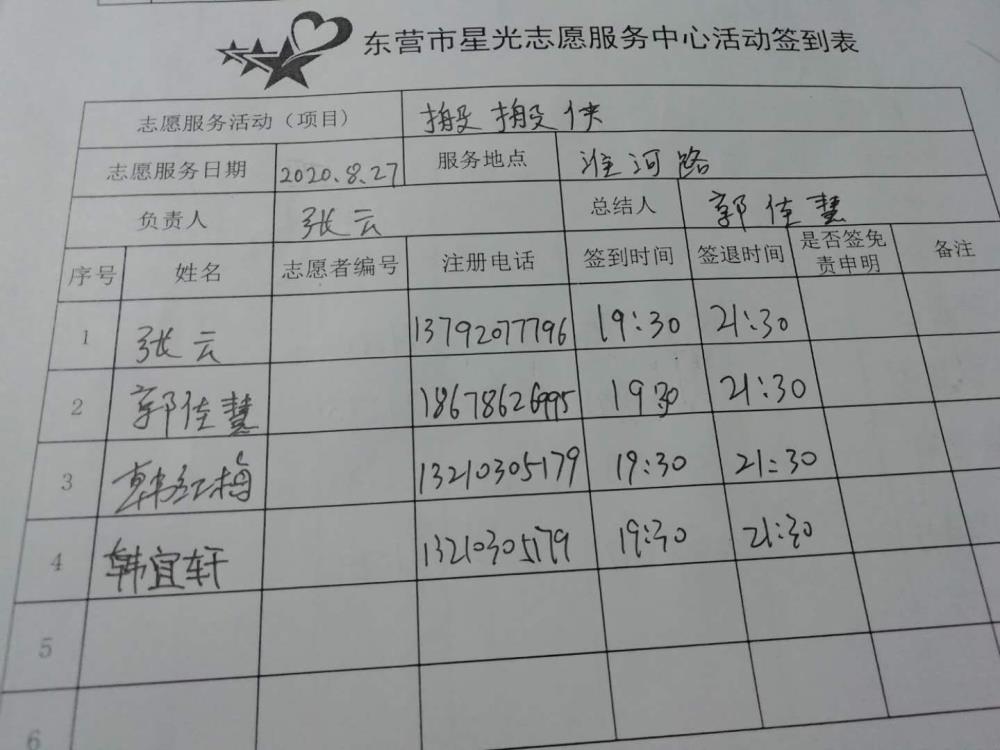 东营市星光志愿服务中心活动签到表
志愿服务活动（项目） 搬搬侠
志愿服务日期 2020.8.27 服务地点 淮河路
负责人 张云 总结人 郭佳慧
序号 姓名 志愿者编号 注册电话 签到时间 签退时间 是否签免责申明 备注
1 张云 13792077796 19:30 21:30
2 郭佳慧 18678626995 19:30 21:30
3 韩红梅 13210305179 19:30 21:30
4 韩宜轩 13210305179 19:30 21:30
5
6